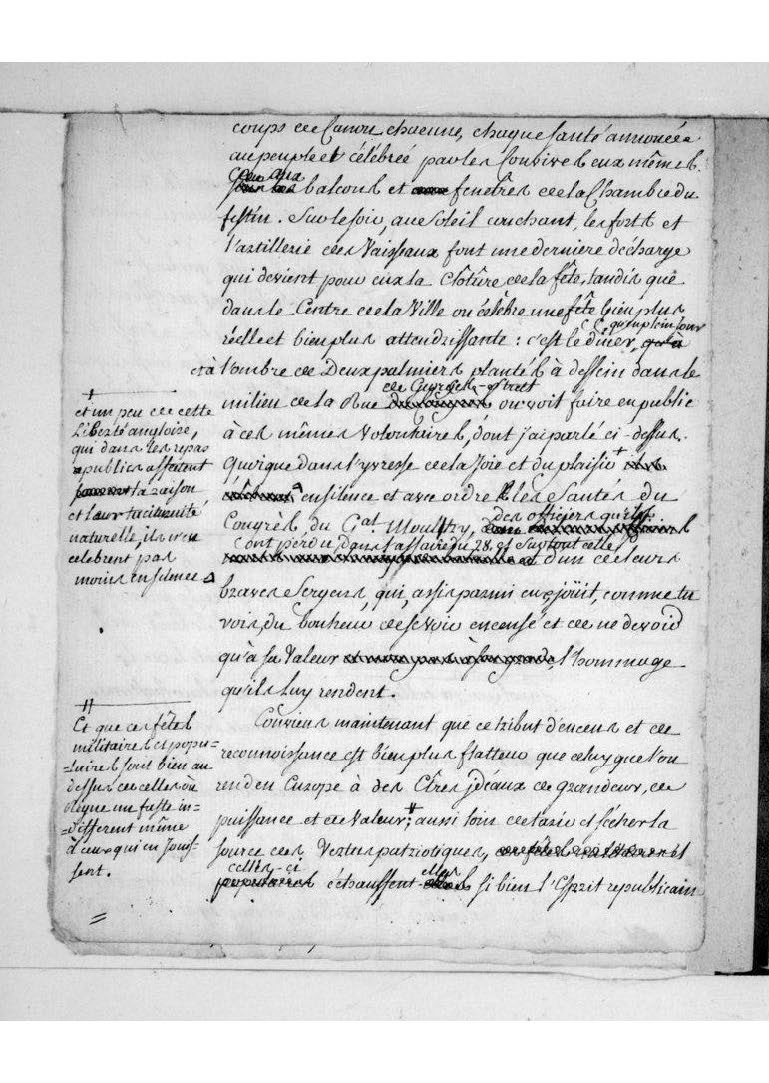 coups de Canon chacune, chaque santé annoncée
au peuple et célébrée par les Convives eux mêmes
aux
balcons et fenêtres de la Chambre du
festin. Sur le soir, au Soleil couchant, les forts et
l'artillerie des Vaisseaux font une derniere décharge
qui devient pour eux la Clôture de la fête, tandis que
dans le Centre de la Ville on célèbre une fête bien plus
réelle et bien plus attendrissante : c'est le diner, qu'en plein jour
et à l'ombre de Deux palmiers plantés à dessein dans le
milieu de la Rue de on voit faire en public
à ces mêmes Volontaires, dont j'ai parlé ci-dessus.
Quoique dans l'yvresse de la Joie et du plaisir +
en silence et avec ordre les Santés du
Congrès, du Gal. Moultry, des officiers qu'ils
ont perdu dans l'affaire du 28, et surtout celle
d'un de leurs
braves Sergens, qui, assis parmi eux, joüit, comme tu
vois, du bonheur de se voir encensé et de ne devoir
qu'à sa Valeur l'hommage
qu'ils luy rendent.
Conviens maintenant que ce tribut d'encens et de
reconnoissance est bien plus flatteur que celuy que l'on
rend en Europe à des Etres idéaux de grandeur, de
puissance et de Valeur; aussi loin de tarir et sécher la
source des Vertus patriotiques,
celles-ci
échauffent si bien l'Esprit republicain
+
et un peu de cette
Liberté angloise,
qui dans les repas
publics affectent
la raison
et leur taciturnité
naturelle, ils n'en
celebrent pas
moins en silence
Et que ces fêtes
militaires et popu-
-laires sont bien au
dessus de celles où
règne un faste in-
-différent même
à ceux qui en jouis-
sent.
=